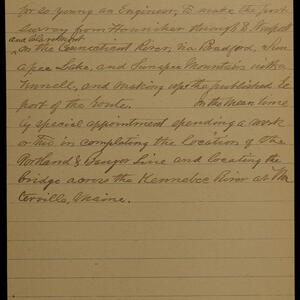 for so young an Engineer, to make the first
survey from Henniker through to Newport
and Claremont
on the Connecticut River, via Bradford, Sun
apee Lake, and Sunapee Mountain with a
Tunnell, and making up the published Re
port of the route. In the mean time
by special appointment spending a week
or two in completing the location of the
Portland & Bangor Line and locating the
bridge across the Kennebec River at Wa
terville, Maine.